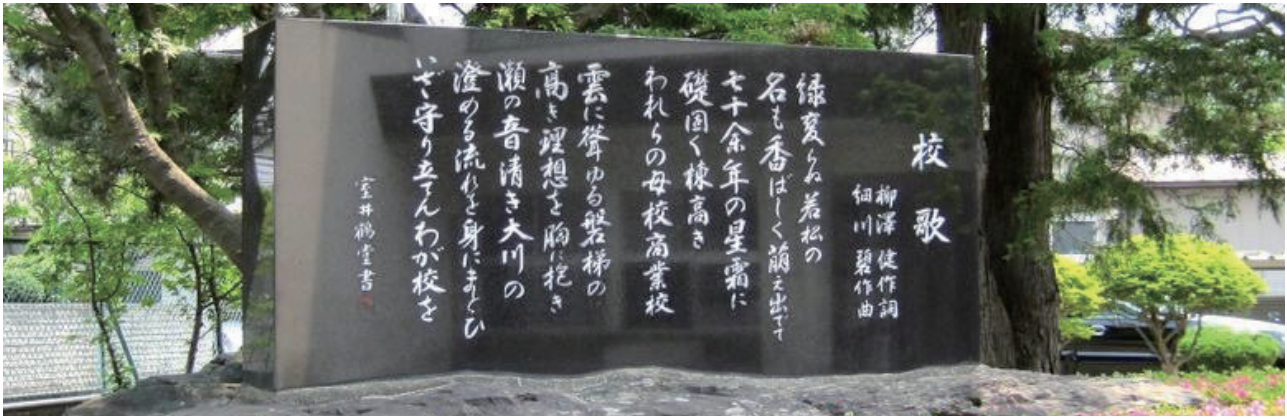 校歌
柳澤健作詞
細川碧作曲
緑変らぬ若松の
名も香ばしく萠え出でて
七十余年の星霜に
礎固く棟高き
われらの母校商業校
雲に聳ゆる磐梯の
高き理想を胸に抱き
瀬の音清き大川の
澄める流れを身にまとひ
いざ守り立てんわが校を
室井鶴堂書